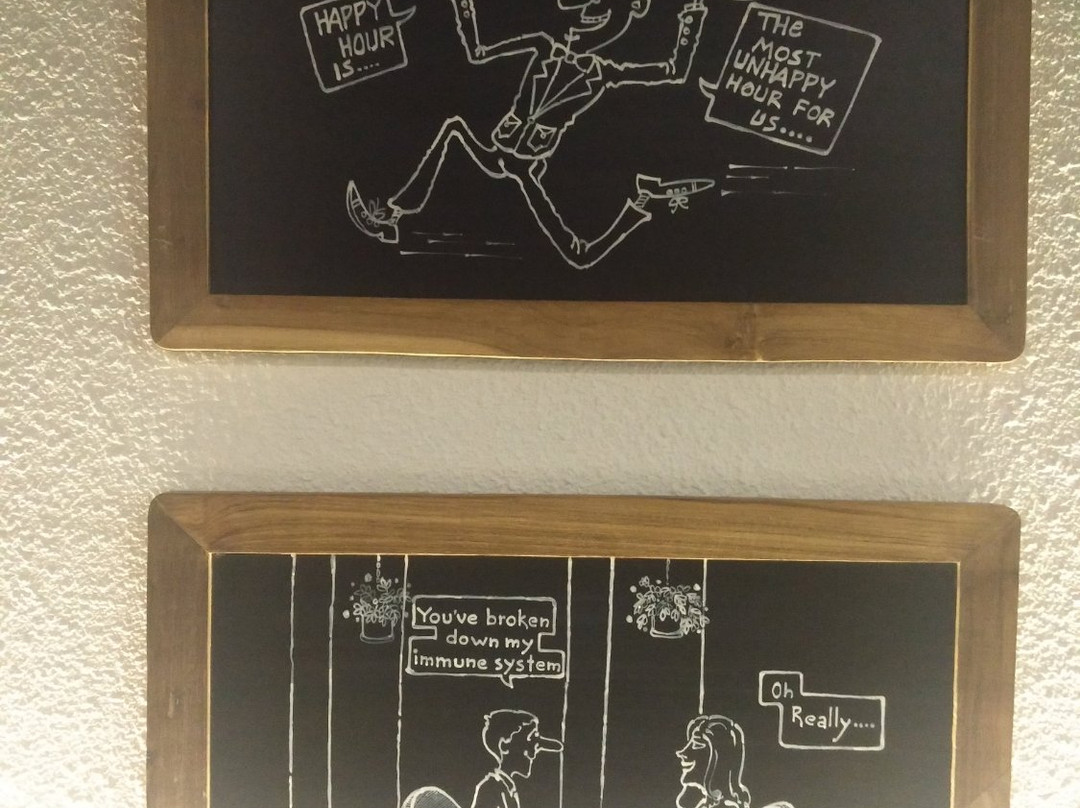 HAPPY
HOUR
IS....
THE
MOST
UNHAPPY
HOUR FOR
US....
You've broken
down my
immune system
Oh
Really....